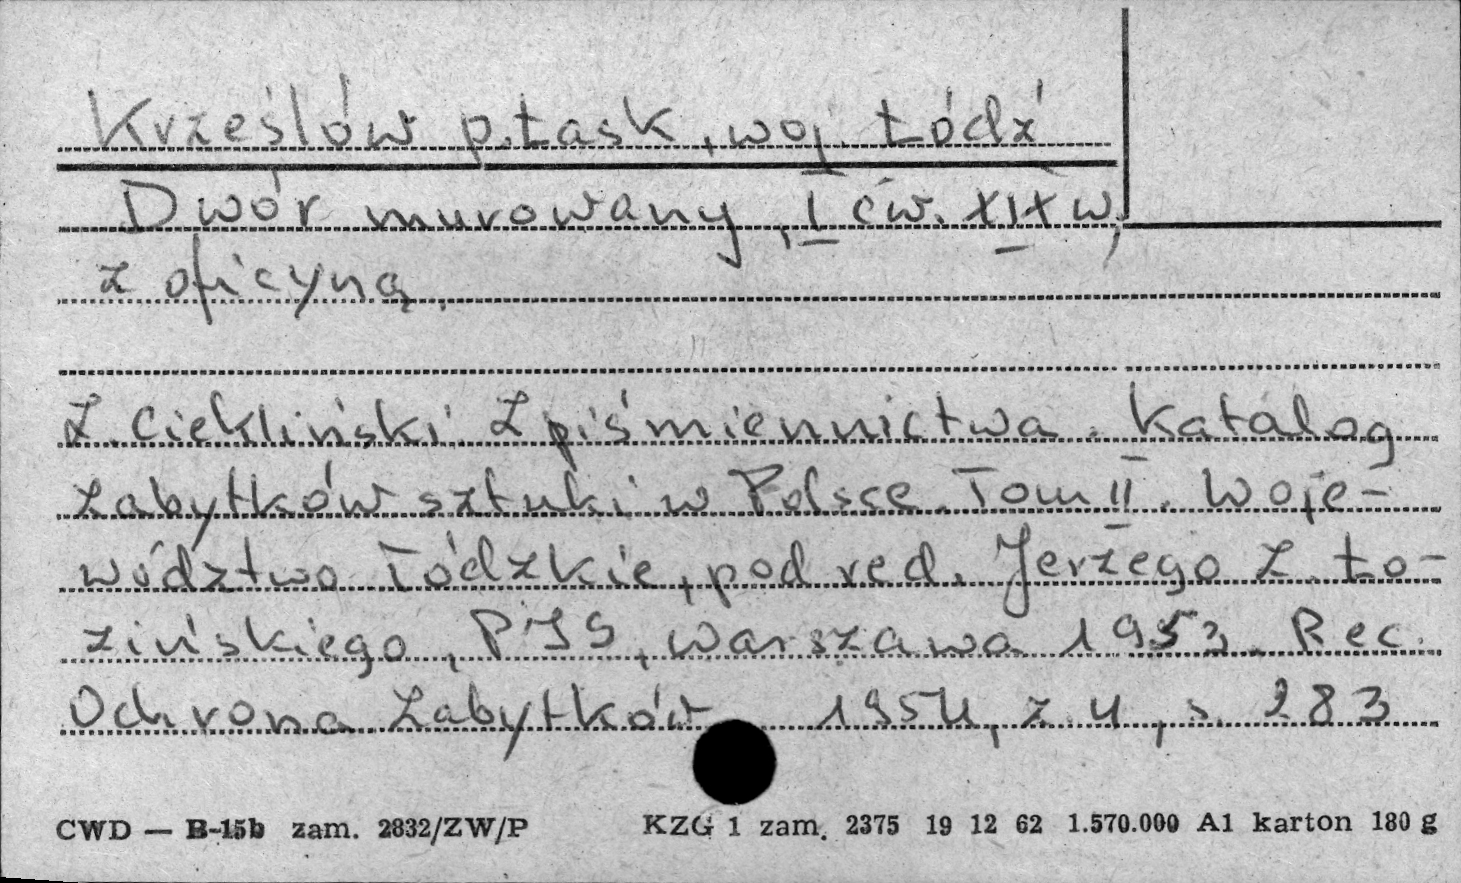 Krześlów p. Łask, woj. Łódź
Dwór murowany, I ćw. XIX w,
z oficyną.
Z. Ciekliński Z piśmiennictwa. Katalog
Zabytków sztuki w Polsce. Tom II. Woje-
wództwo Łódzkie, pod red. Jerzego Z. Ło-
zińskiego, PIS, Warszawa 1953. Rec.
Ochrona Zabytków 1954, z. 4, s. 283
CWD — B-15b zam. 2832/ZW/P KZG 1 zam. 2375 19 12 62 1.570.000 A1 karton 180 g